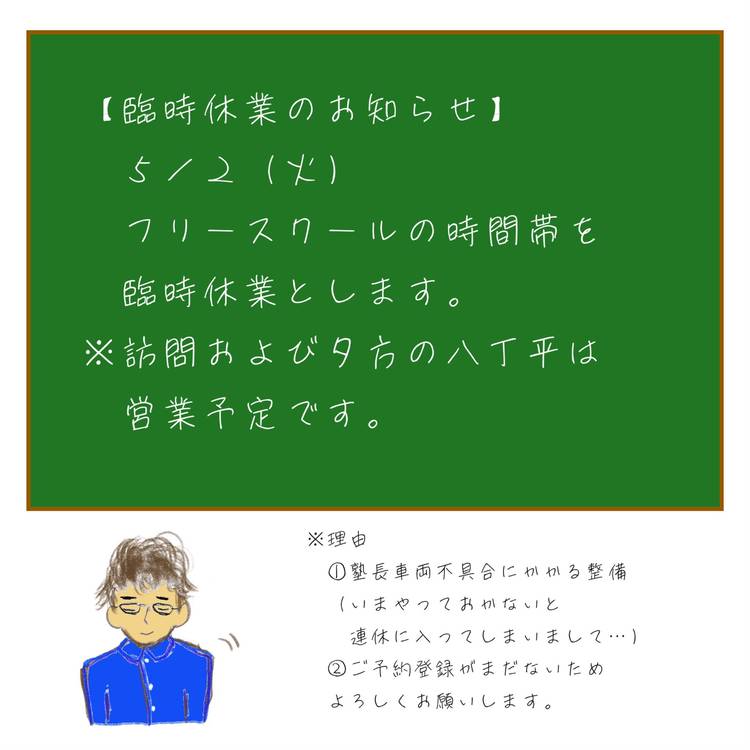 【臨時休業のお知らせ】
5/2(火)
フリースクールの時間帯を
臨時休業とします。
※訪問および夕方の八丁平は
営業予定です。
※理由
①塾長車両不具合にかかる整備
(いまやっておかないと
連休に入ってしまいまして…)
②ご予約登録がまだないため
よろしくお願いします。